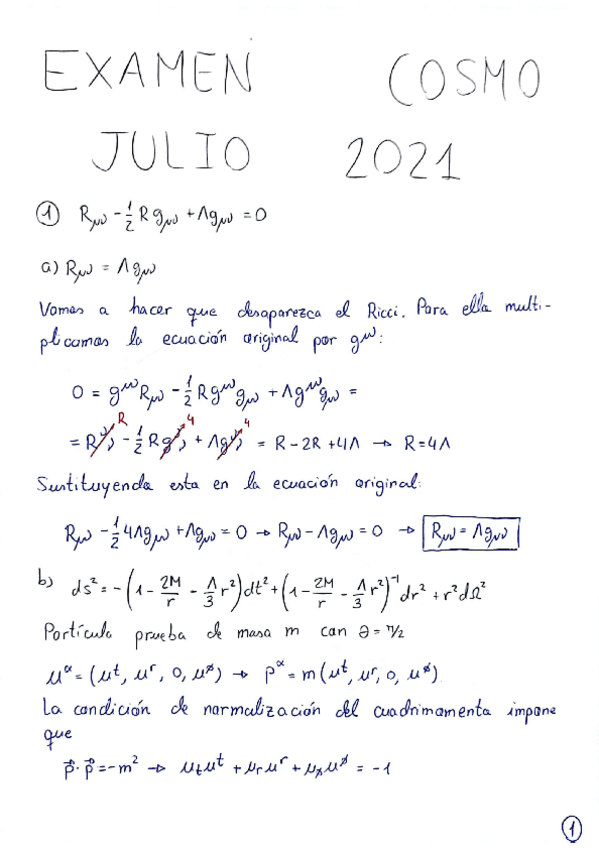 EXAMEN COSMO
JULIO 2021
① Rμν - 1/2 R gμν + Λgμν = 0
a) Rμν = Λgμν
Vamos a hacer que desaparezca el Ricci. Para ello multi-
plicamos la ecuación original por g^μν:
0 = g^μν Rμν - 1/2 R g^μν gμν + Λg^μν gμν =
= R^ν_ν R - 1/2 R g^ν_ν 4 + Λg^ν_ν 4 = R - 2R + 4Λ → R = 4Λ
Sustituyendo esto en la ecuación original:
Rμν - 1/2 4Λgμν + Λgμν = 0 → Rμν - Λgμν = 0 → Rμν = Λgμν
b) ds² = -(1 - 2M/r - Λ/3 r²)dt² + (1 - 2M/r - Λ/3 r²)⁻¹ dr² + r²dΩ²
Partícula prueba de masa m con θ = π/2
u^α = (u^t, u^r, 0, u^ø) → p^α = m(u^t, u^r, 0, u^ø)
La condición de normalización del cuadrimomento impone
que
p⃗·p⃗ = -m² → u_t u^t + u_r u^r + u_ø u^ø = -1
①